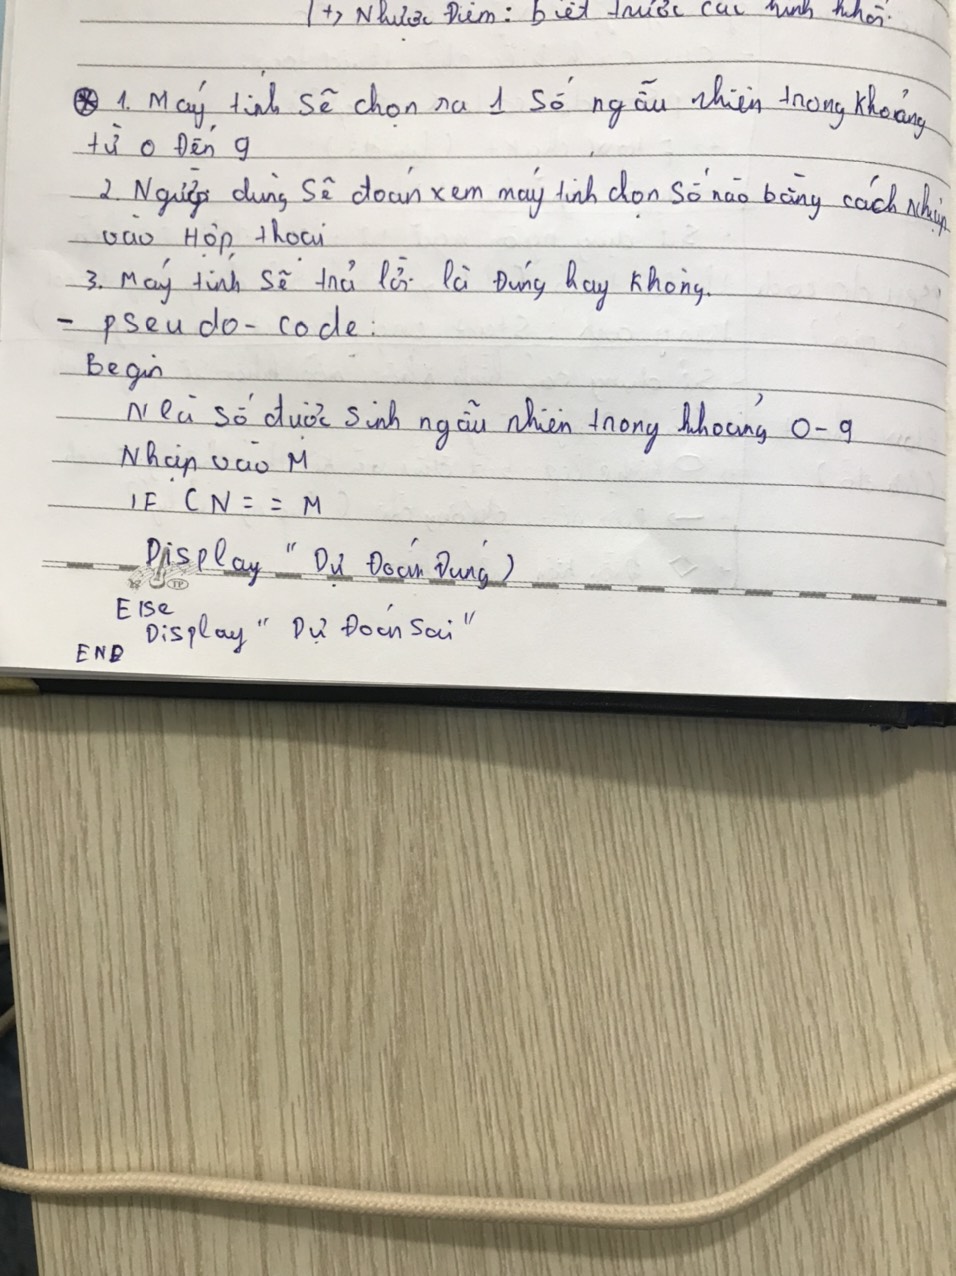 +> Nhược Điểm: biết trước các hình khối.
⊛ 1. Máy tính sẽ chọn ra 1 số ngẫu nhiên trong khoảng
từ 0 Đến 9
2. Người dùng sẽ đoán xem máy tính chọn số nào bằng cách nhập
vào Hộp thoại
3. Máy tính sẽ trả lời là Đúng hay không.
- pseudo-code:
Begin
N là số được sinh ngẫu nhiên trong khoảng 0-9
Nhập vào M
IF (N = = M
Display " Dự Đoán Đúng)
Else
Display " Dự Đoán Sai"
END